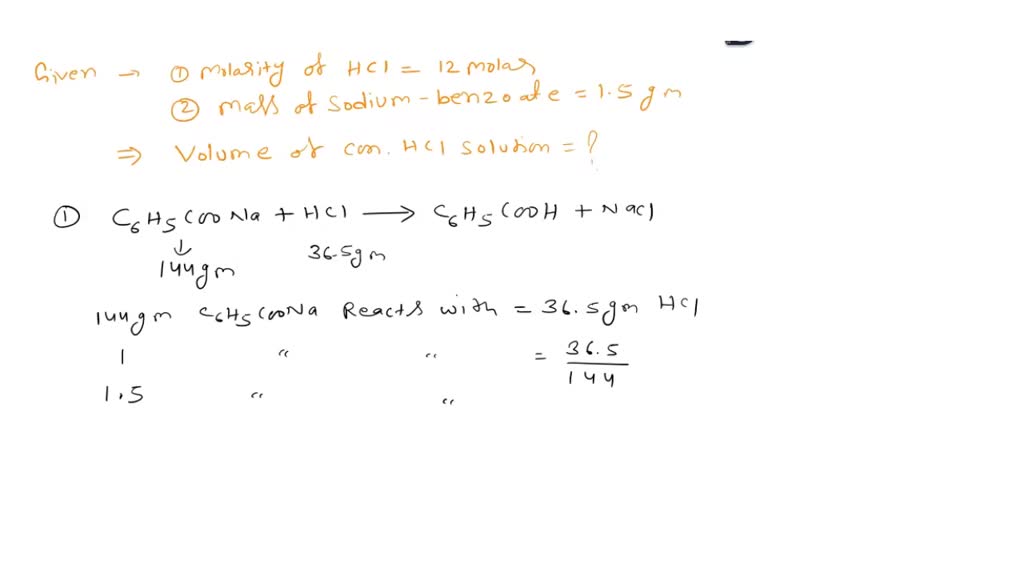 Given → ① Molarity of HCl = 12 molar
② Mass of Sodium-benzoate = 1.5 gm
⇒ Volume of con. HCl solution = ?
① C₆H₅COONa + HCl ⟶ C₆H₅COOH + NaCl
↓
144gm 36.5gm
144gm C₆H₅COONa Reacts with = 36.5gm HCl
1 " " = 36.5/144
1.5 " "